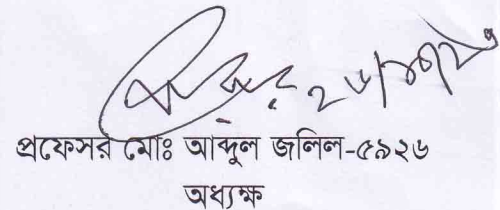 প্রফেসর মোঃ আব্দুল জলিল-৫৯২৬
অধ্যক্ষ